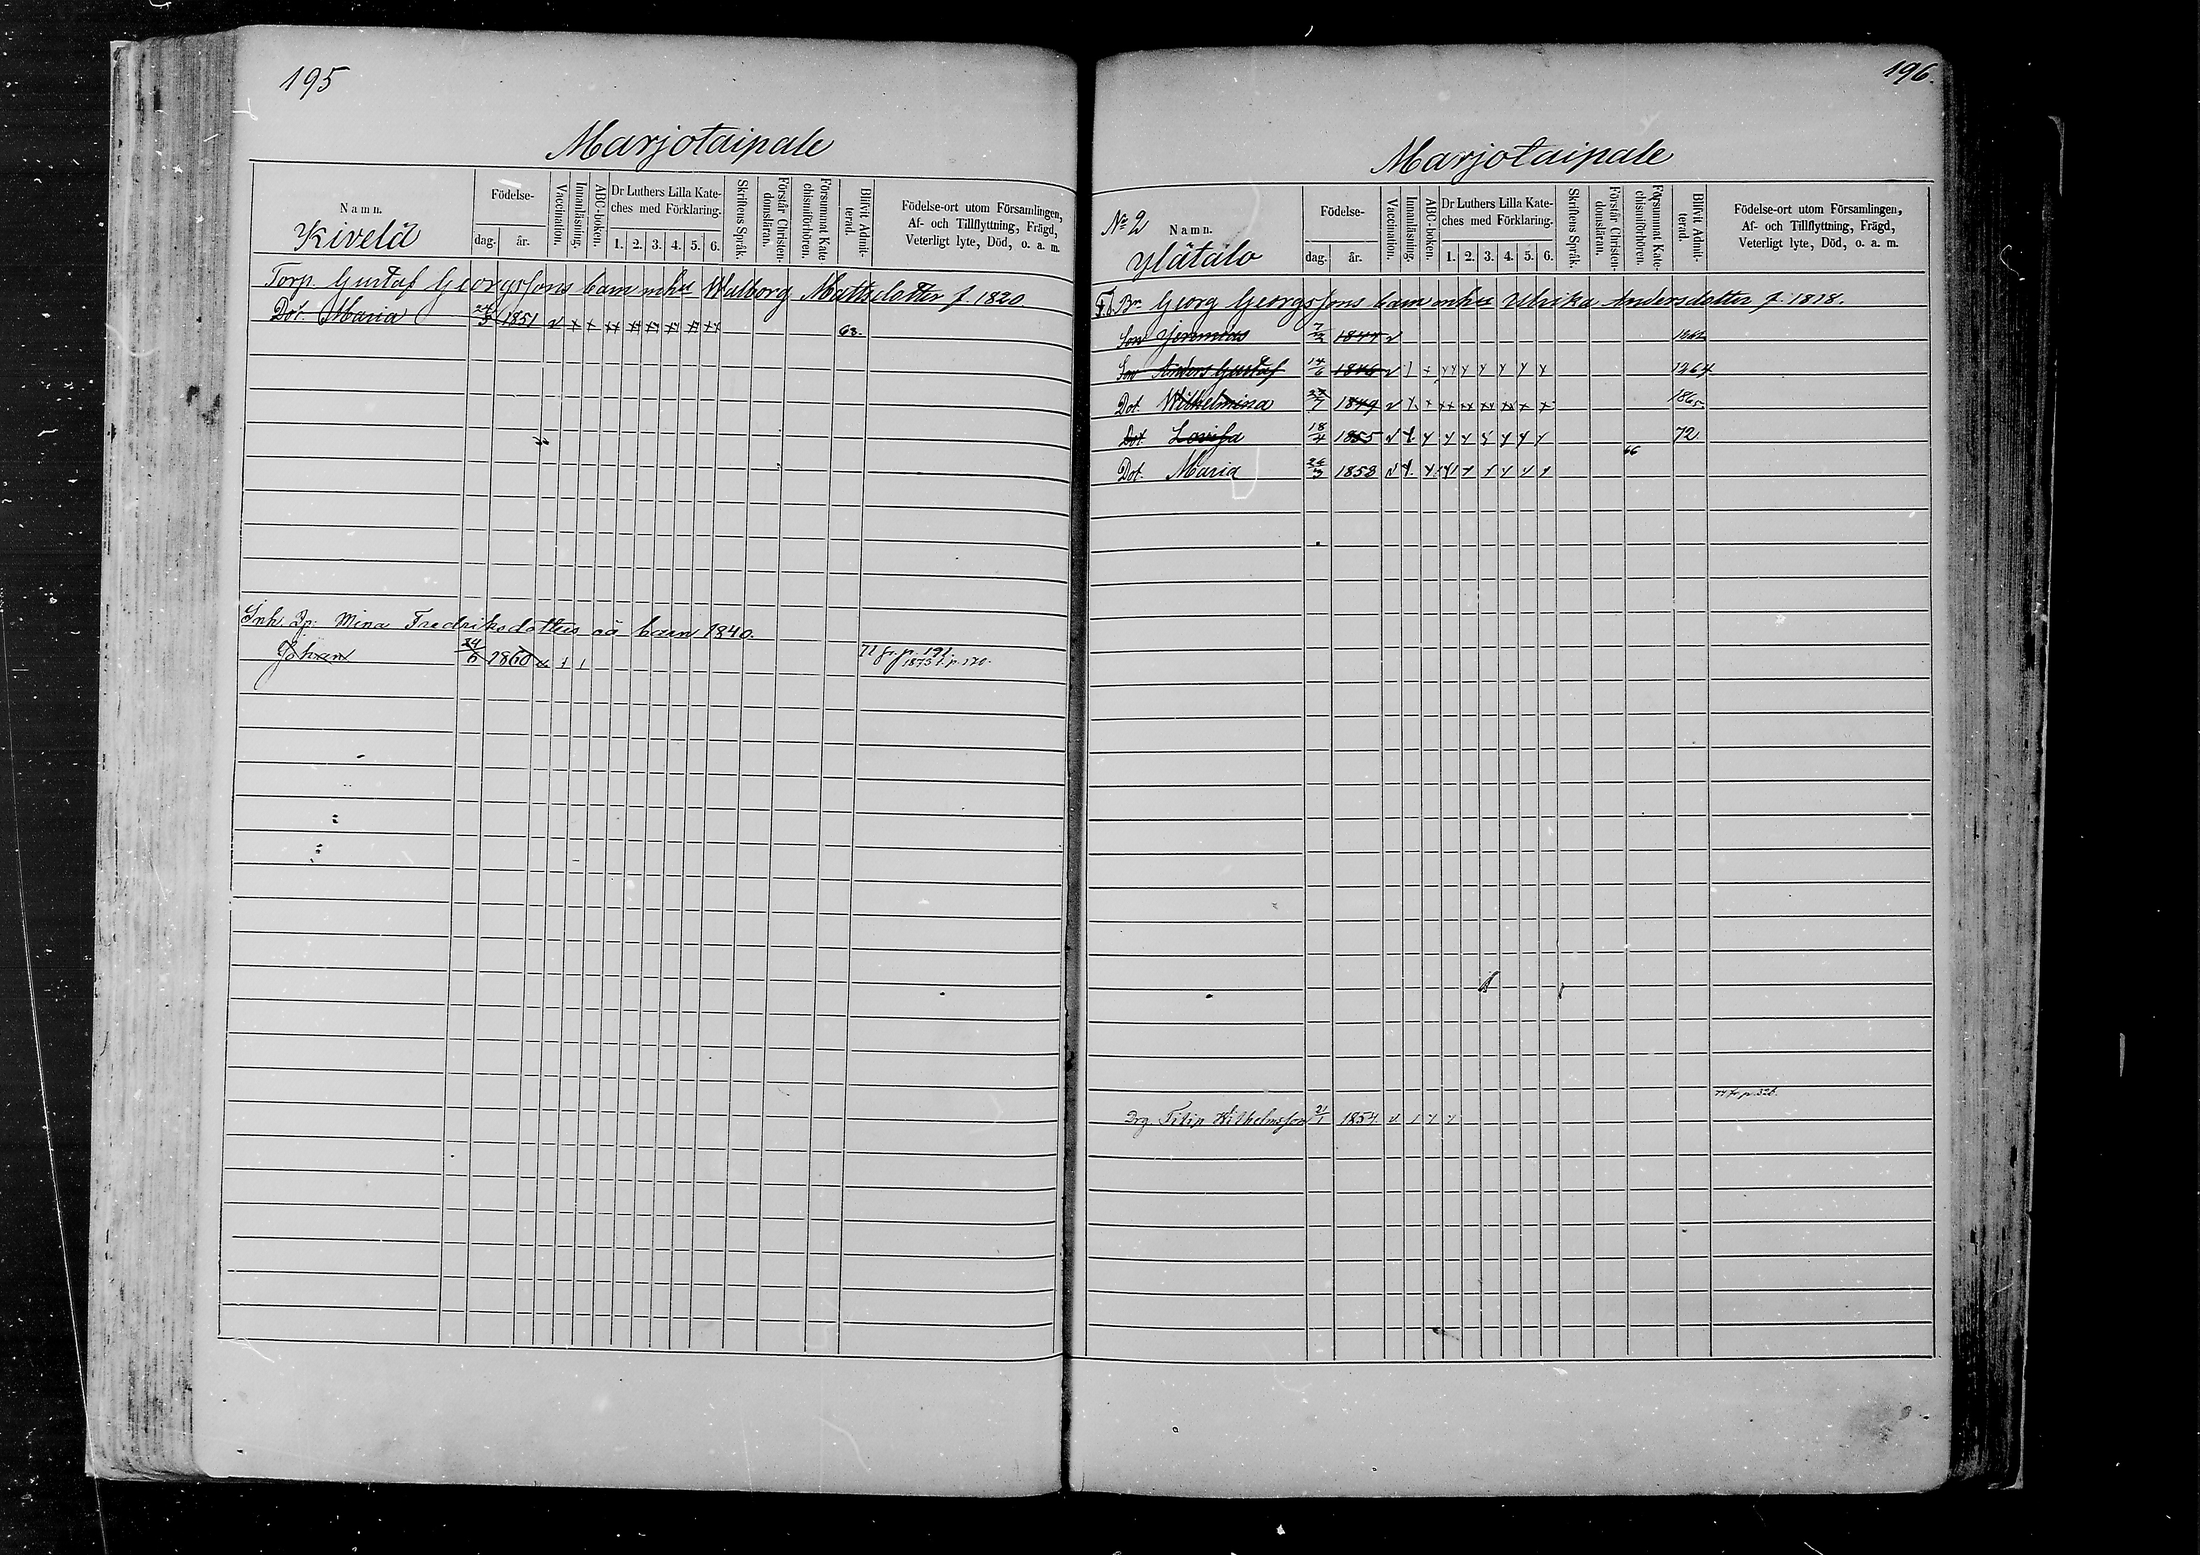 195
Marjotaipale
Namn.
Kivelä
Födelse-
dag. år.
Vaccination.
Innanläsning.
ABC-boken.
Dr Luthers Lilla Kate-
ches med Förklaring.
1. 2. 3. 4. 5. 6.
Skriftens Språk.
Förstår Christen-
domsläran.
Försummat Kate
chismiförhören.
Blifvit Admit-
terad.
Födelse-ort utom Församlingen,
Af- och Tillflyttning, Frägd,
Veterligt lyte, Död, o. a. m.
Torp. Gustaf Georgssons barn m hu Walborg Mattsdotter f. 1820
Dot. Maria 1851 68.
Inh. Mina Fredriksdotters oä barn 1840.
Johan 24/6 1860 71 fr. p. 191.
1875 t. p. 170.
196.
Marjotaipale
No 2
Namn.
Ylätalo
Födelse-
dag. år.
Vaccination.
Innanläsning.
ABC-boken.
Dr Luthers Lilla Kate-
ches med Förklaring.
1. 2. 3. 4. 5. 6.
Skriftens Språk.
Förstår Christen-
domsläran.
Försummat Kate-
chismiförhören.
Blifvit Admit-
terad.
Födelse-ort utom Församlingen,
Af- och Tillflyttning, Frägd,
Veterligt lyte, Död, o. a. m.
Br. Georg Georgssons barn m hu Ulrika Andersdotter f. 1818.
Son Jeremias 1844
Son Anders Gustaf 14/6 1846 1864
Dot. Wilhelmina 1849 1865
Dot. Lovisa 18/4 1855 72
66
Dot. Maria 1858
74 fr. p. 326.
Drg. Filip Wilhelmsson 21/1 1854